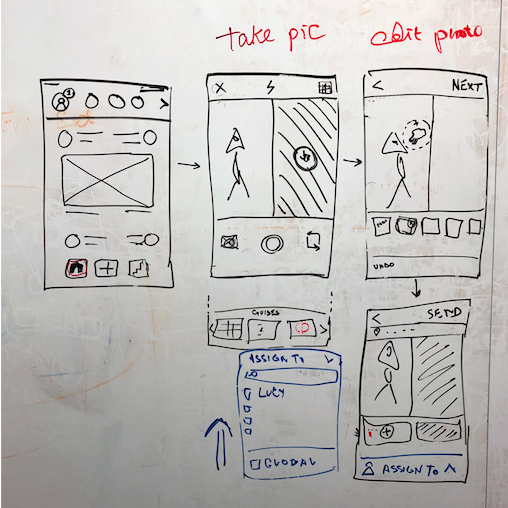 take pic
edit photo
1
NEXT
UNDO
GUIDES
SEND
ASSIGN TO
LUCY
GLOBAL
ASSIGN TO